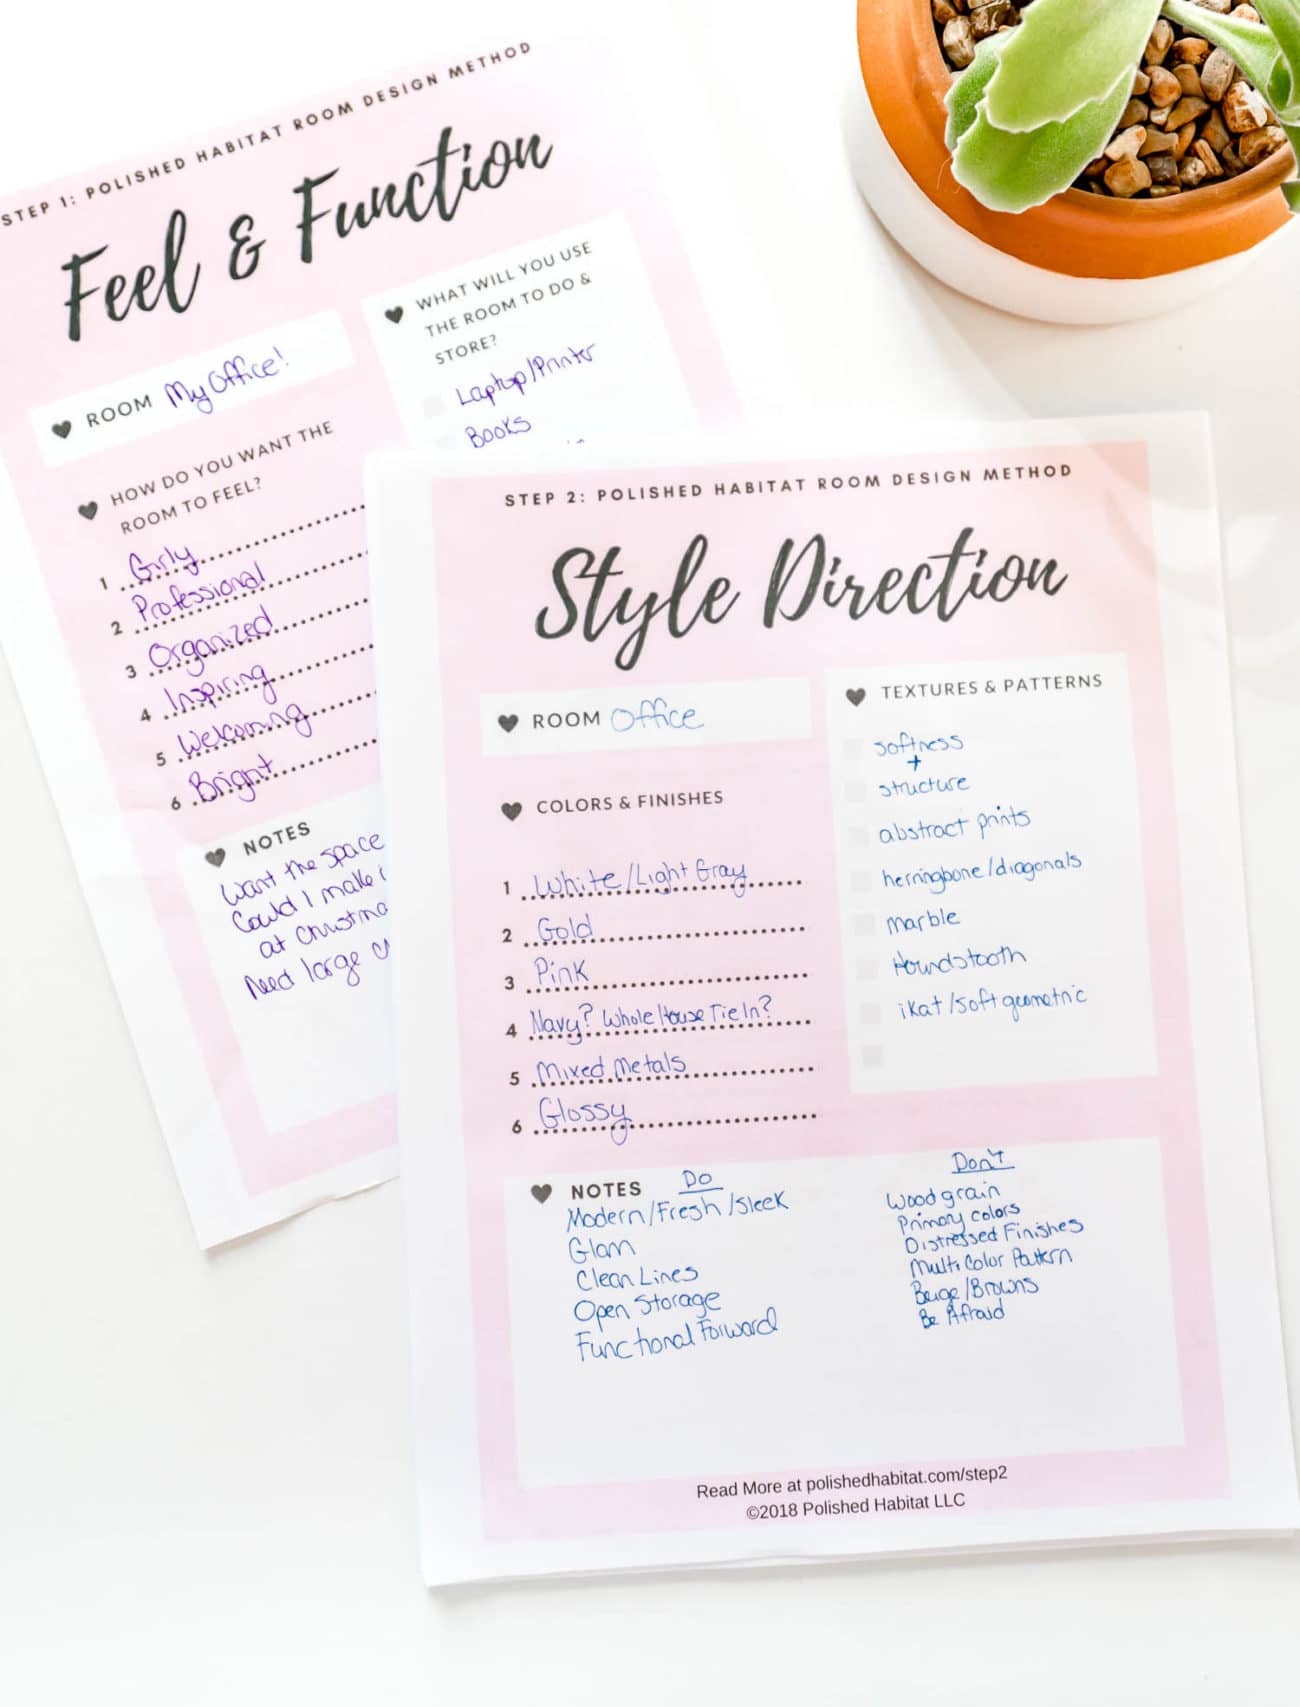 STEP 1: POLISHED HABITAT ROOM DESIGN METHOD
Feel & Function
ROOM My Office!
HOW DO YOU WANT THE
ROOM TO FEEL?
1 Girly
2 Professional
3 Organized
4 Inspiring
5 Welcoming
6 Bright
WHAT WILL YOU USE
THE ROOM TO DO &
STORE?
Laptop/Printer
Books
NOTES
Want the space
Could I make
at Christma
Need large
STEP 2: POLISHED HABITAT ROOM DESIGN METHOD
Style Direction
ROOM Office
COLORS & FINISHES
1 White/Light Gray
2 Gold
3 Pink
4 Navy? Whole House Tie In?
5 Mixed Metals
6 Glossy
TEXTURES & PATTERNS
softness
+
structure
abstract prints
herringbone/diagonals
marble
Houndstooth
ikat/soft geometric
NOTES Do
Modern/Fresh/Sleek
Glam
Clean Lines
Open Storage
Functional Forward
Don't
Wood grain
Primary colors
Distressed Finishes
Multi Color Pattern
Beige/Browns
Be Afraid
Read More at polishedhabitat.com/step2
©2018 Polished Habitat LLC